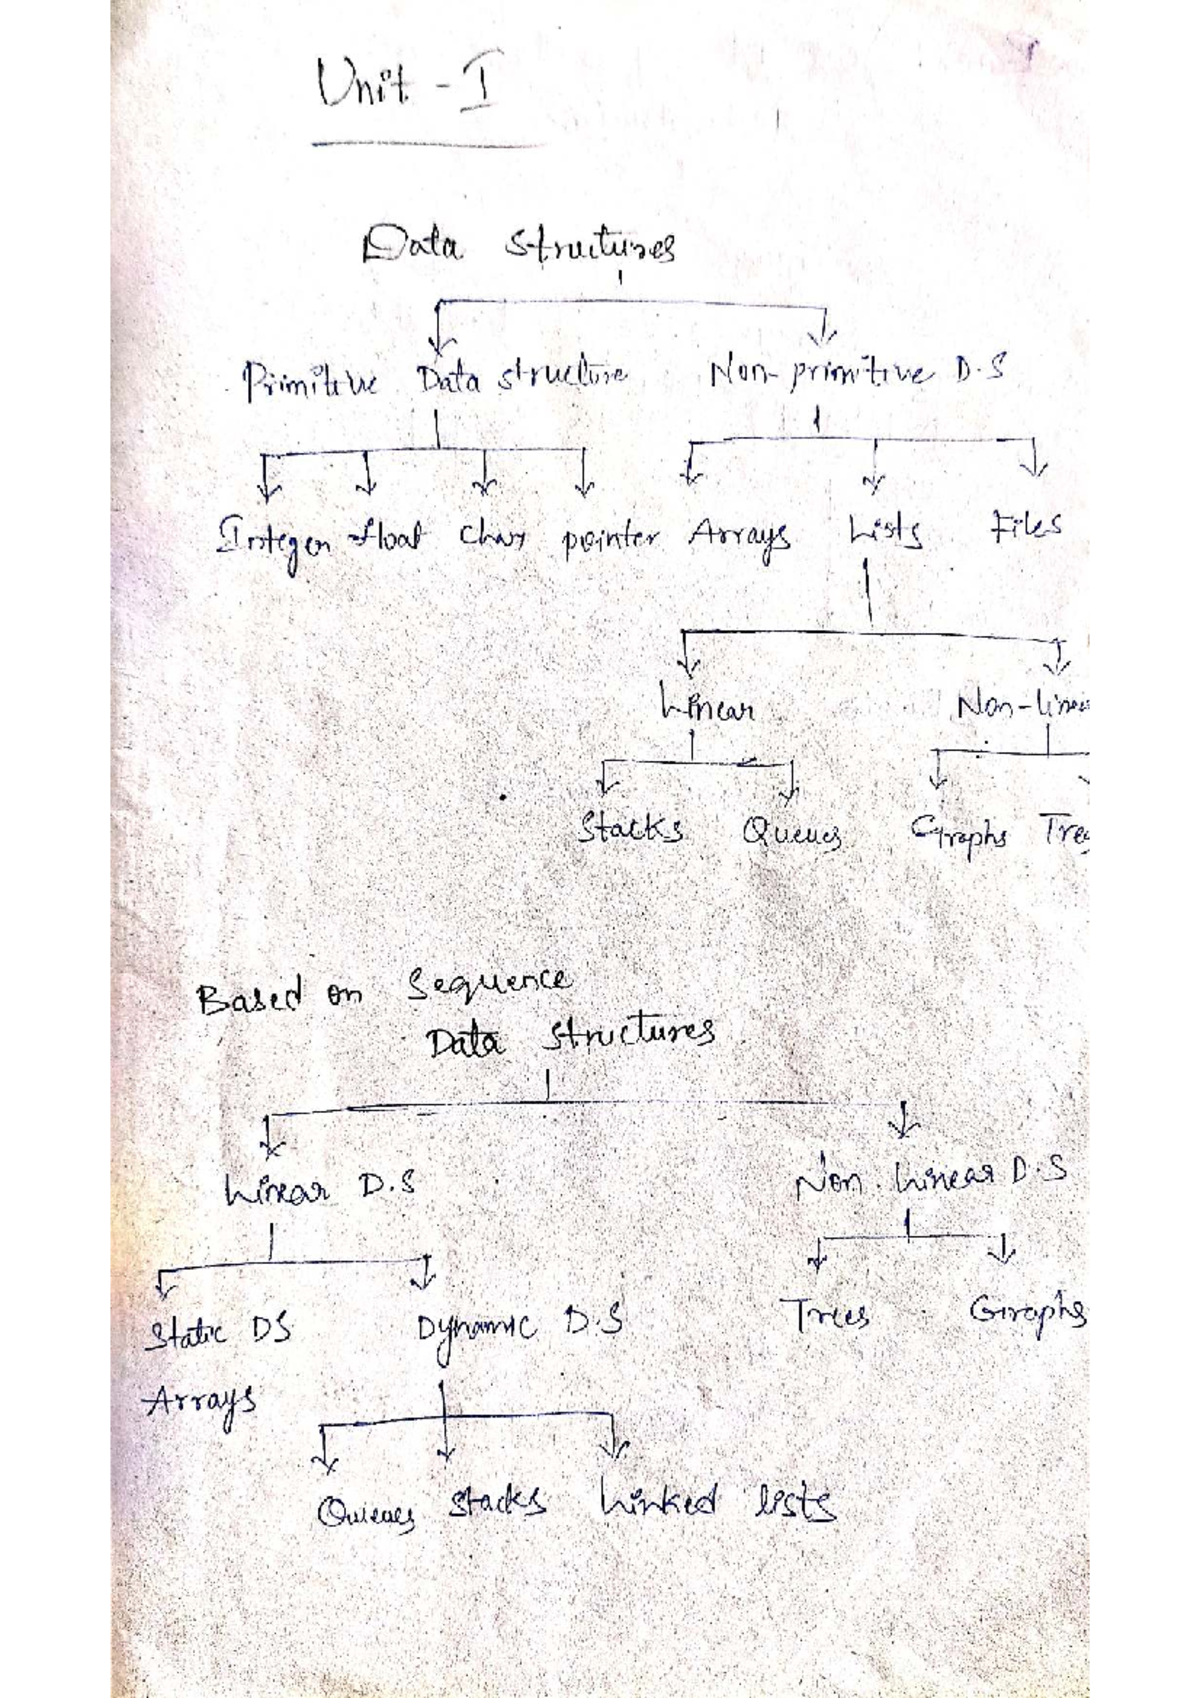 Unit - I
Data Structures
Primitive Data structure Non-primitive D.S
Integer float Char pointer Arrays Lists Files
Linear Non-linea
Stacks Queues Graphs Tree
Based on Sequence
Data Structures
Linear D.S Non-Linear D.S
Static DS Dynamic D.S Trees Graphs
Arrays
Queues Stacks Linked lists